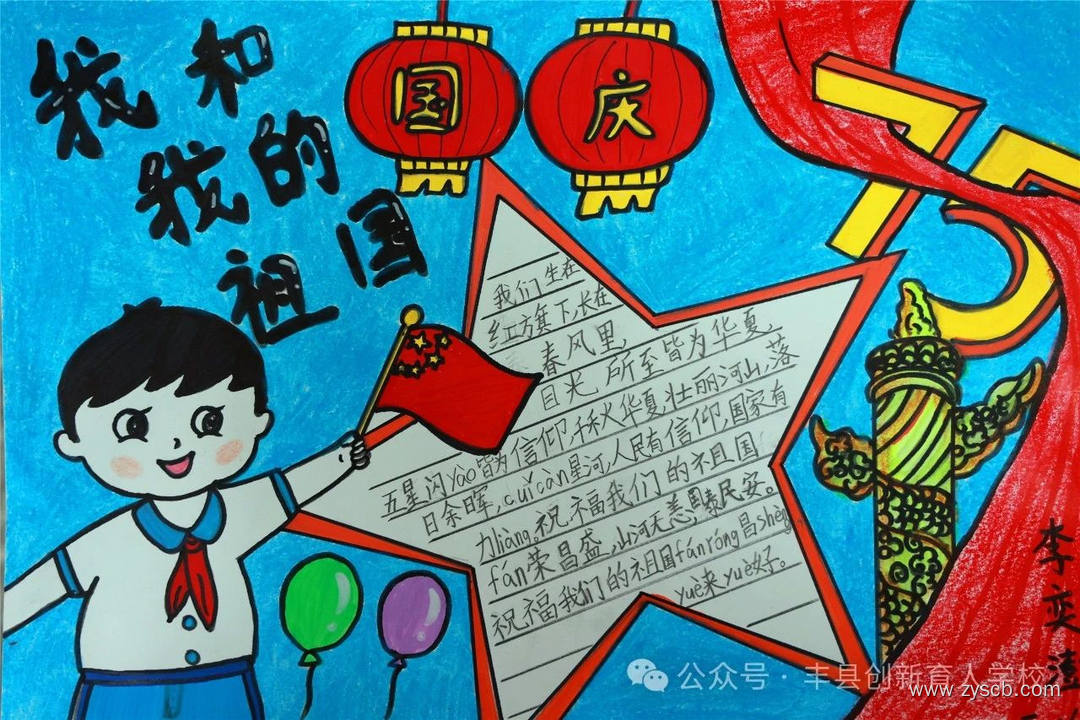 我和
我的
祖国
国庆
75
我们生在
红方旗下,长在
春风里
目光所至皆为华夏,
五星闪yào皆为信仰,千秋华夏,壮丽河山,落
日余晖,cuǐcàn星河,人民有信仰,国家有
力liang。祝福我们的祖国
fán荣昌盛,山河无恙,国泰民安。
祝福我们的祖国fánróng昌shèng
yuè来yuè好。
李奕
公众号·丰县创新育人学校
www.zyscb.com